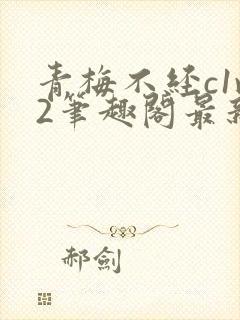 青梅不经c1v
2筆趣閣最新
郝劍